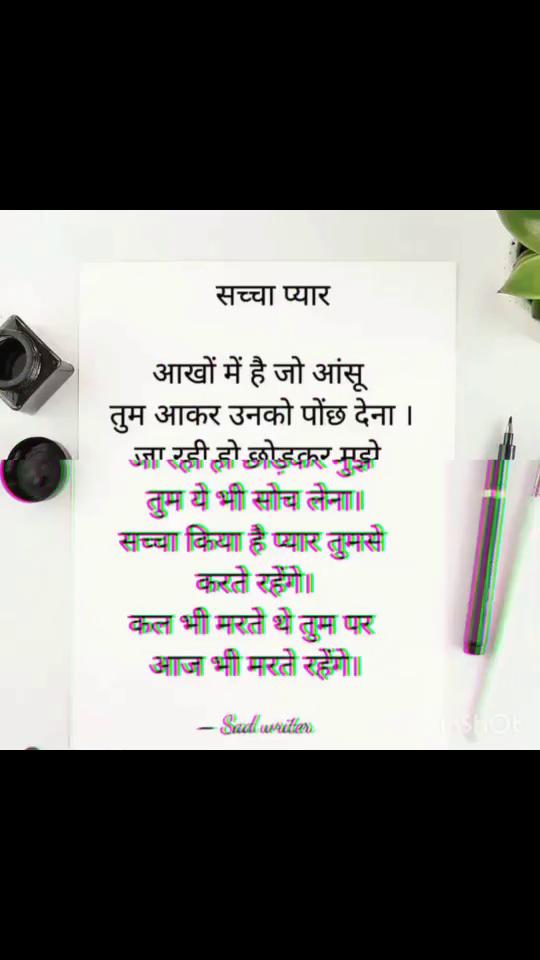 सच्चा प्यार
आखों में है जो आंसू
तुम आकर उनको पोंछ देना ।
जा रही हो छोड़कर मुझे
तुम ये भी सोच लेना।
सच्चा किया है प्यार तुमसे
करते रहेंगे।
कल भी मरते थे तुम पर
आज भी मरते रहेंगे।
— Sad writer